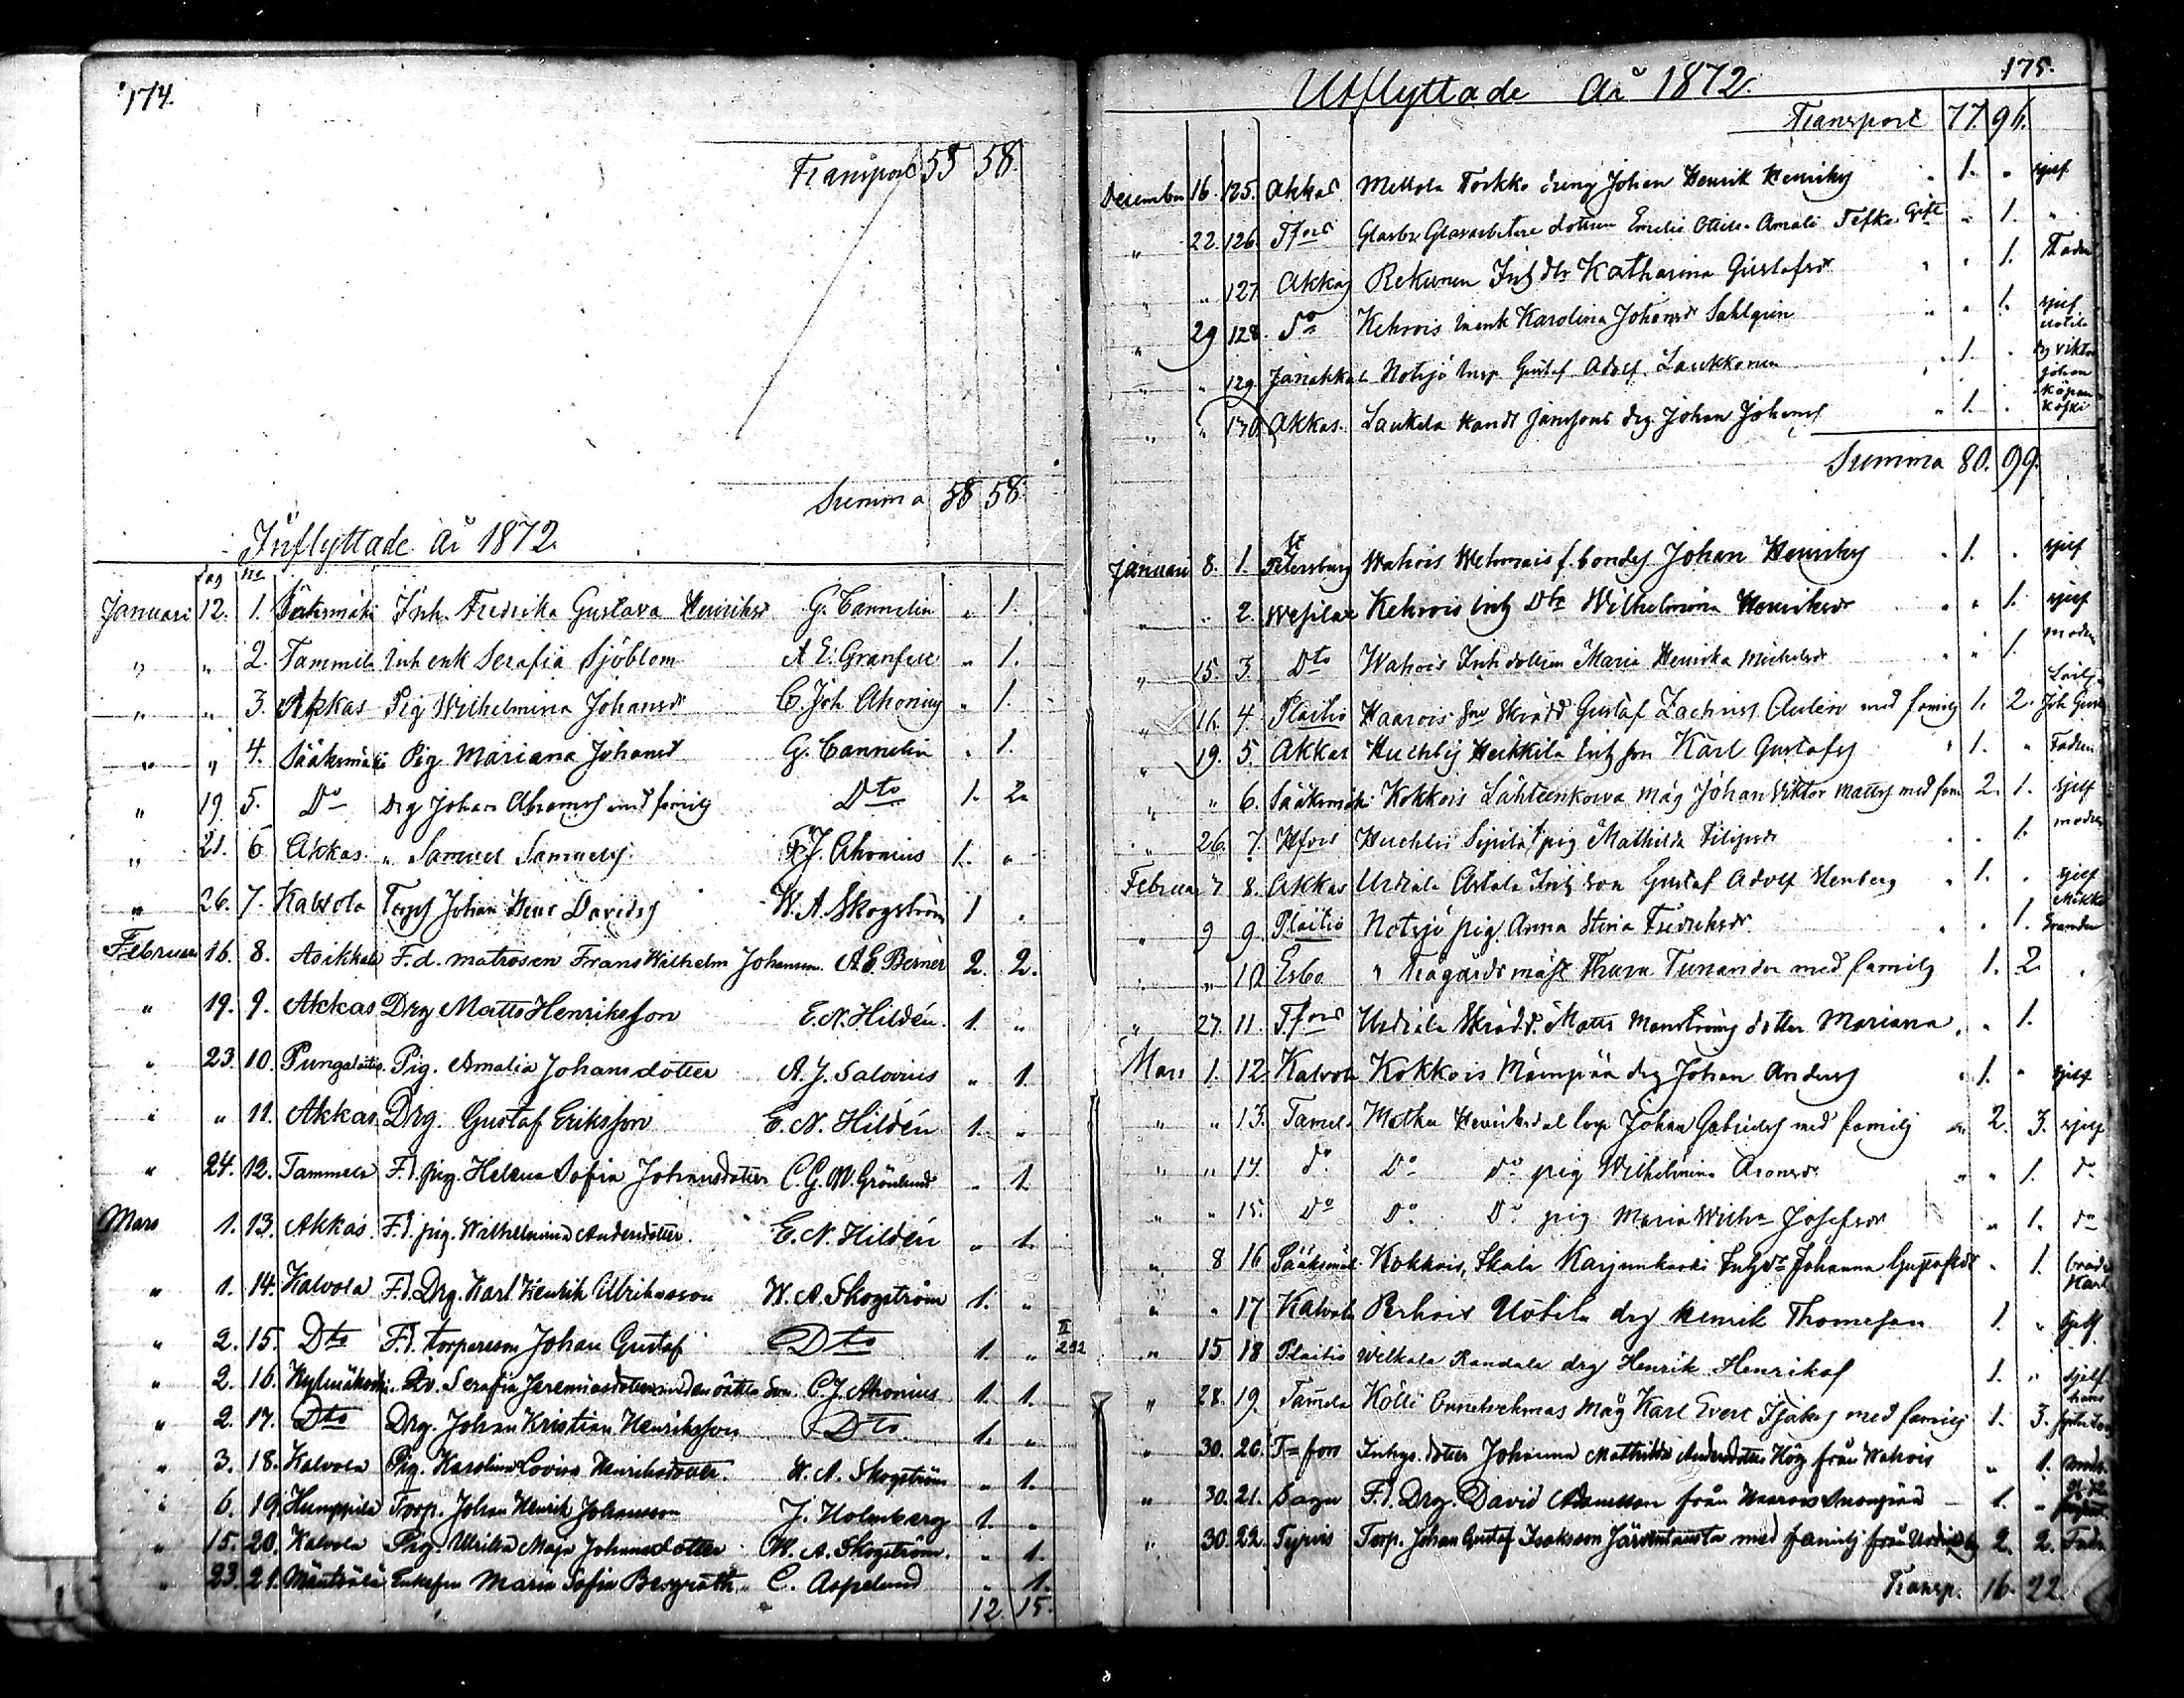 174.
Transport 55 58.
Summa 58 58.
Inflyttade år 1872.
dag no
Januari 12. 1. Sääksmäki Inh. Fredrika Gustava Henriksdr G. Cannelin " 1.
" " 2. Tammela Inh enk Serafia Sjöblom A E. Granfelt " 1.
" " 3. Akkas Pig Wilhelmina Johansdr C. Joh Ahonius " 1.
" " 4. Sääksmäki Pig Mariana Johansdr G. Cannelin " 1.
" 19 5. Do Drg Johan Abramss med familj Dto 1. 2.
" 21. 6 Akkas " Samuel Samuelss. F.J. Ahonius 1. "
" 26. 7. Kalvola Johan Henr Davidss W. A. Skogström 1 "
Februari 16. 8. Asikkala F.d. matrosen Frans Wilhelm Johansson. A E. Berner 2. 2.
" 19. 9. Akkas Drg Matts Henriksson E. N. Hildén. 1. "
" 23. 10. Pungalaitio. Pig. Amalia Johansdotter A. J. Salovius " 1.
" " 11. Akkas Drg. Gustaf Eriksson E. N. Hildén 1. "
" 24. 12. Tammela F.d. pig. Helena Sofia Johansdotter C. G. W. Grönlund " 1.
Mars 1. 13. Akkas. F.d. pig. Wilhelmina Andersdotter. E. N. Hildén " 1.
" 1. 14. Kalvola F.d. Drg. Karl Henrik Ulriksson W. A. Skogström 1. "
" 2. 15. Dto F.d. torpareson Johan Gustaf Dto 1. " II 292
" 2. 16. Kylmäkoski. Qv. Serafia Jeremiasdotter med en oäkta Son. C. J. Ahonius 1. 1.
" 2. 17. Dto Drg. Johan Kristian Henriksson Dto 1. "
" 3. 18. Kalvola Pig. Karolina Lovisa Henriksdotter W. A. Skogström " 1.
" 6. 19. Humppila Torp. Johan Henrik Johansson J. Holmberg 1. "
" 15. 20. Kalvola Pig. Ulrika Maja Johansdotter W. A. Skogström. " 1.
" 23. 21. Mäntsälä Enkefru Maria Sofia Bergroth. C. Aspelund " 1.
12 15.
175.
Utflyttade år 1872.
Transport 77. 96.
December 16. 125. Akkas Mellola Torkko dreng Johan Henrik Henrikss " 1. " sjelf
" 22. 126. Tfors Glasbr Glasarbetare dottren Emelie Otilie Amali Tefke. Gift " 1. "
" " 127 Akkas Rekunen Inh dtr Katharina Gustafsdr " " 1. Fadren
" 29 128. Do Kehrois Inenk Karolina Johansdr Sahlgren " " 1. sjelf
" " 129. Janakkala Notsjö Insp Gustaf Adolf Laukkonen " 1. "
" " 130. Akkas. Laukela Hand Janssons drg. Johan Johanss " 1. "
Summa 80. 99.
Januari 8. 1. St Petersburg Wahois Wehmais f. bondes. Johan Henrikss " 1. " sjelf
" " 2. Wesilax Kehrois Inh Dtr Wilhelmina Henriksdr " " 1. sjelf
" 15. 3. Dto Wahois Inh dottren Maria Henrika Michelsdr " " 1. modren
" 16. 4. Plaitio Haarois Skrädd Gustaf Zachriss Aulén med familj 1. 2.
" 19. 5. Akkas Huchtis Heikkilä Inh son Karl Gustafss " 1. " Fadren
" " 6. Sääksmäki Kokkois Lähteenkorva måg Johan Viktor Mattss med fam 2. 1. sjelf
" 26. 7. Hfors Huchtis Sipilä pig Mathilda Filipsdr " " 1. modren
Februari 7 8. Akkas Urdiala Artala Inh son Gustaf Adolf Stenberg " 1. " sjelf
" 9 9. Plaitio Notsjö pig. Anna Stina Fredriksdr " " 1.
" " 10 Esbo " Trägårdsmäst Thure Tunander med familj 1. 2. "
" 27. 11. Tfors Urdiala Skrädd. Matts Manströms dotter Mariana " " 1.
Mars 1. 12. Kalvola Kokkois Mäenpää drg Johan Anderss " 1. " sjelf
" " 13. Tamela Matku Henriksdal torp Johan Gabrielss med familj 2. 3. sjelf
" " 14. do Do do pig Wilhelmina Aronsdr " " 1. do
" " 15. do Do Do pig Maria Wilhna Josefsdr " " 1. do
" 8 16 Sääksmäki Kokkois, Skala Karjunkoski Inh dtr Johanna Gustafsdr " 1.
" " 17 Kalvola Perhois Uotila drg Henrik Thomasson 1. " Sjelf
" 15 18 Plaitio Wilkala Randala drg Henrik Henrikss 1. " sjelf
" 28. 19. Tamela Kölli Onnetvehmas Måg Karl Evert med familj 1. 3.
" 30. 20. T=fors Inhys. dotter Johanna Mathilda Andersdotter Hög från Wahois " 1.
" 30. 21. Sagu F.d. Drg. David Adamsson från Haarois 1. "
" 30. 22. Tyrvis Torp. Johan Gustaf Isaksson Järventausta med familj från Urdiala 2. 2.
Transp. 16. 22.